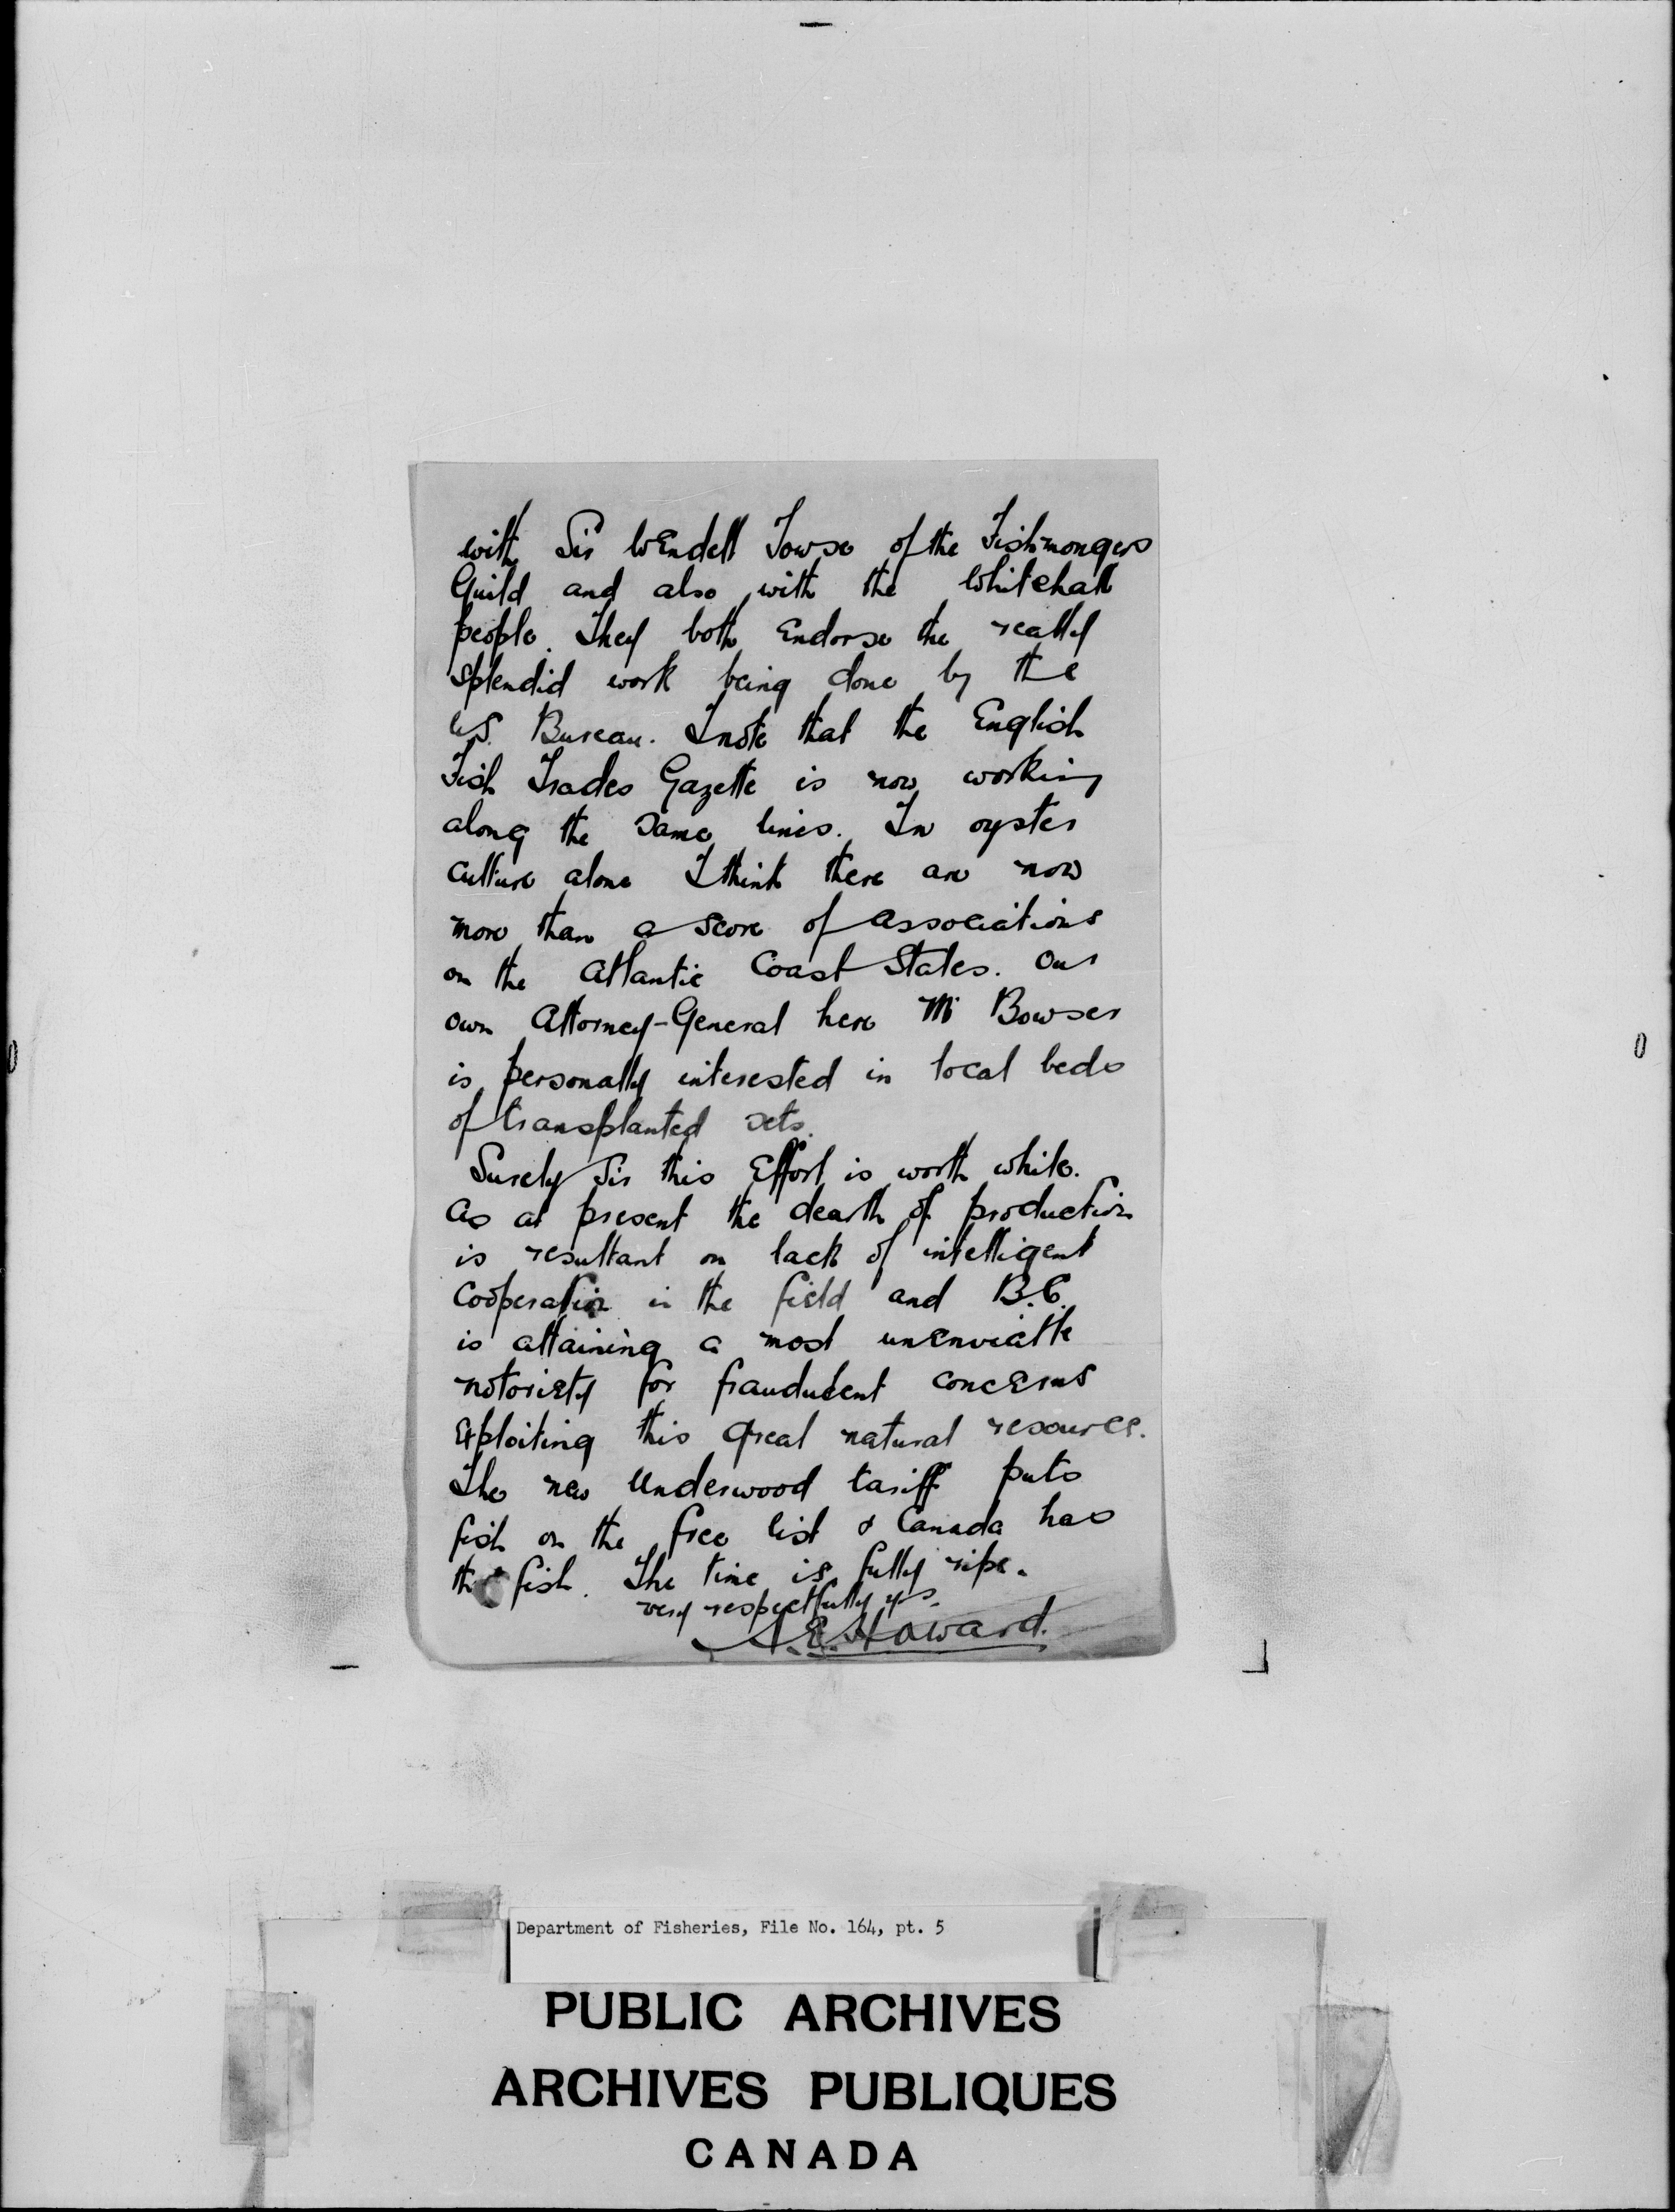 with Sir Wendell Towse of the Fishmongers
Guild and also with the Whitehall
people. They both Endorse the really
splendid work being done by the
US. Bureau. I note that the English
Fish Trades Gazette is now working
along the same lines. In oyster
culture alone I think there are now
more than a score of associations
on the Atlantic Coast States. Our
own Attorney-General here Mr Bowser
is personally interested in local beds
of transplanted sets.
Surely Sir this Effort is worth while.
As at present the dearth of production
is resultant on lack of intelligent
Cooperation in the field and B.C.
is attaining a most unenviable
notoriety for fraudulent concerns
Exploiting this great natural resource.
The new Underwood tariff puts
fish on the free list & Canada has
the fish. The time is fully ripe.
very respectfully yrs.
A.E. Howard.
Department of Fisheries, File No. 164, pt. 5
PUBLIC ARCHIVES
ARCHIVES PUBLIQUES
CANADA